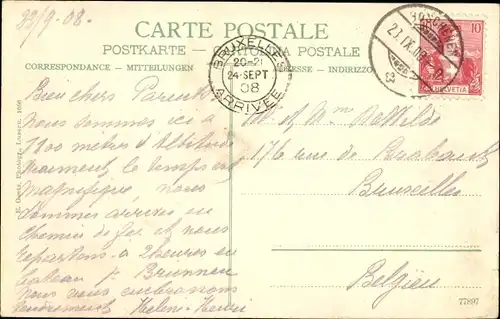 23/9-08-
CARTE POSTALE
POSTKARTE - CARTOLINA POSTALE
CORRESPONDANCE - MITTEILUNGEN
ADRESSE - INDIRIZZO
BRUXELLES
20-21
24-SEPT
08
ARRIVÉE
23.IX.08
10
HELVETIA
Bien chers Parents
Nous sommes ici à
1100 mètres d'altitude
vraiment, le temps est
magnifique nous
sommes arrivés en
chemin de fer et nous
repartons à 2 heures en
bateau p. Brunnen
Nous vous embrassons
tendrement Hélène-Henri
M. & Mme DeWilde
176 rue de Brabant
Bruxelles
Belgien
77697